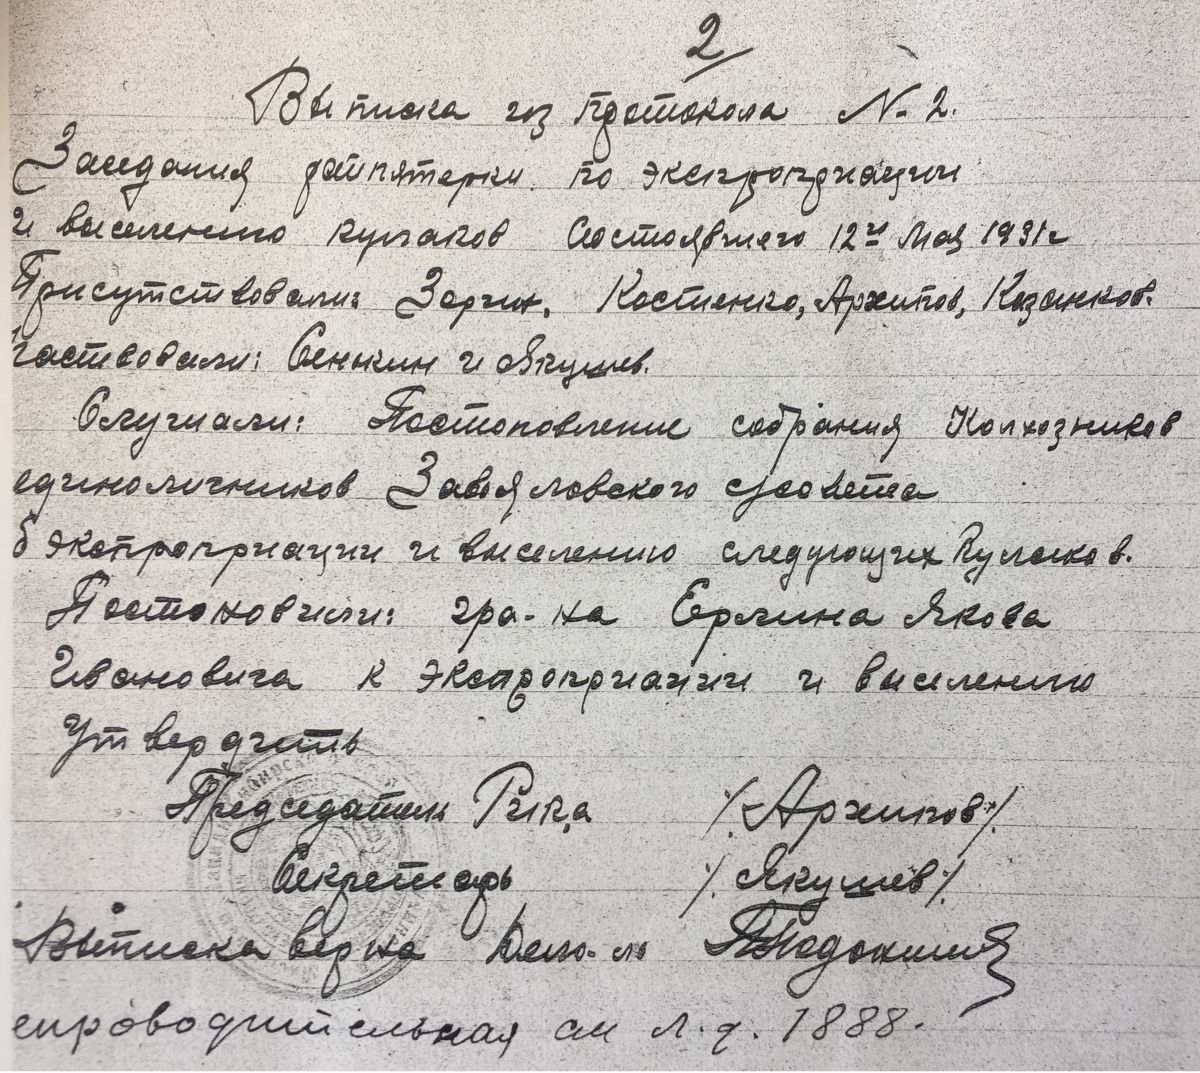 2
Выписка из протокола № 2.
Заседания райпятерки по экспроприации
и выселению кулаков состоявшегося 12го Мая 1931г
Присутствовали: Зоргин, Костенко, Архипов, Казанков.
частвовали: Сенькин и Якушев.
Слушали: Постоновление собрания Колхозников
единоличников Завьяловского с/совета
б экспроприации и выселению следующих Кулаков.
Постоновили: гра-на Ермина Якова
Ивановича к экспроприации и выселению
Утвердить
Председатель Рика /Архипов/.
Секретарь /Якушев/
Выписка верна Дело-ль
епроводительная см л.д. 1888.